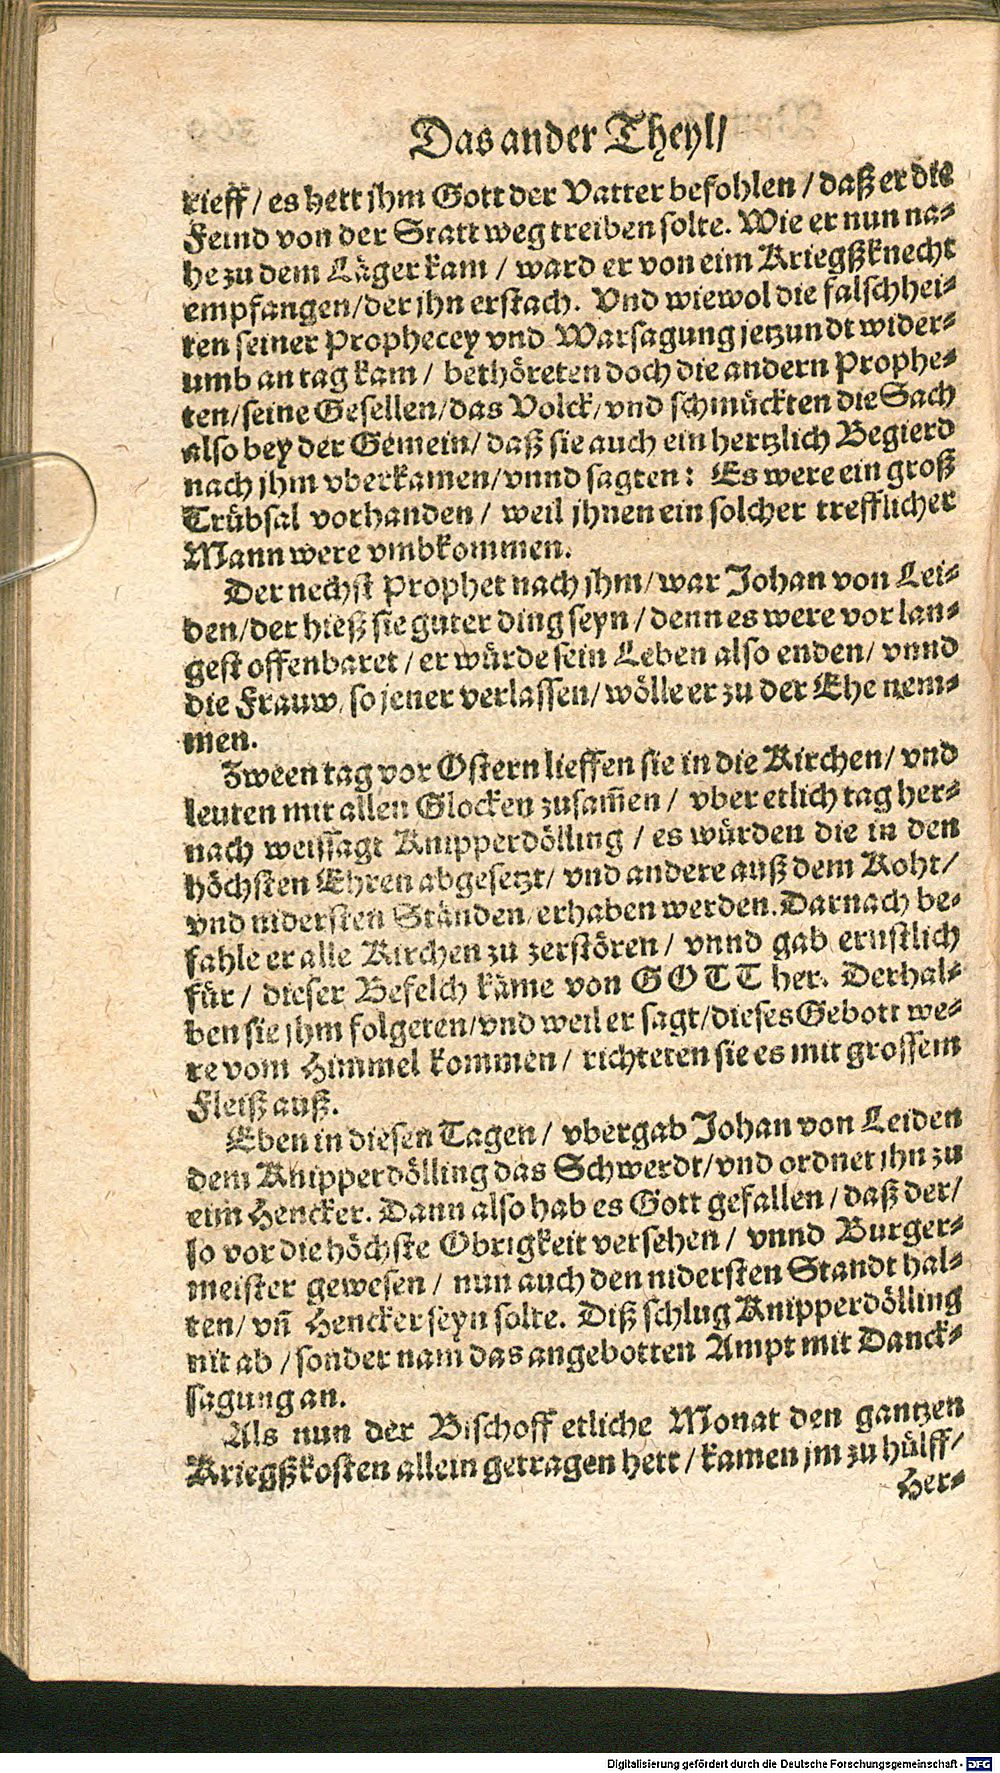 Das ander Theyl/
rieff / es hett jhm Gott der Vatter befohlen / daß er die
Feind von der Statt weg treiben solte. Wie er nun na-
he zu dem Läger kam / ward er von eim Kriegßknecht
empfangen/der jhn erstach. Vnd wiewol die falschhei-
ten seiner Prophecey vnd Warsagung jetzundt wider-
umb an tag kam / bethöreten doch die andern Prophe-
ten/seine Gesellen/das Volck/vnd schmückten die Sach
also bey der Gemein/ daß sie auch ein hertzlich Begierd
nach jhm vberkamen/vnnd sagten: Es were ein groß
Trübsal vorhanden / weil jhnen ein solcher trefflicher
Mann were vmbkommen.
Der nechst Prophet nach jhm/war Johan von Lei-
den/der hieß sie guter ding seyn / denn es were vor lan-
gest offenbaret / er würde sein Leben also enden/ vnnd
die Frauw, so jener verlassen/ wölle er zu der Ehe nem-
men.
Zween tag vor Ostern lieffen sie in die Kirchen/ vnd
leuten mit allen Glocken zusam̄en / vber etlich tag her-
nach weissagt Knipperdölling / es würden die in den
höchsten Ehren abgesetzt/ vnd andere auß dem Koht/
vnd nidersten Ständen/erhaben werden. Darnach be-
fahle er alle Kirchen zu zerstören / vnnd gab ernstlich
für / dieser Befelch käme von GOTT her. Derhal-
ben sie jhm folgeten/vnd weil er sagt/dieses Gebott we-
re vom Himmel kommen / richteten sie es mit grossem
Fleiß auß.
Eben in diesen Tagen / vbergab Johan von Leiden
dem Knipperdölling das Schwerdt/vnd ordnet jhn zu
eim Hencker. Dann also hab es Gott gefallen / daß der/
so vor die höchste Obrigkeit versehen / vnnd Burger-
meister gewesen / nun auch den nidersten Standt hal-
ten/ vn̄ Hencker seyn solte. Diß schlug Knipperdölling
nit ab / sonder nam das angebotten Ampt mit Danck-
sagung an.
Als nun der Bischoff etliche Monat den gantzen
Kriegßkosten allein getragen hett / kamen jm zu hülff/
Her-
Digitalisierung gefördert durch die Deutsche Forschungsgemeinschaft - DFG